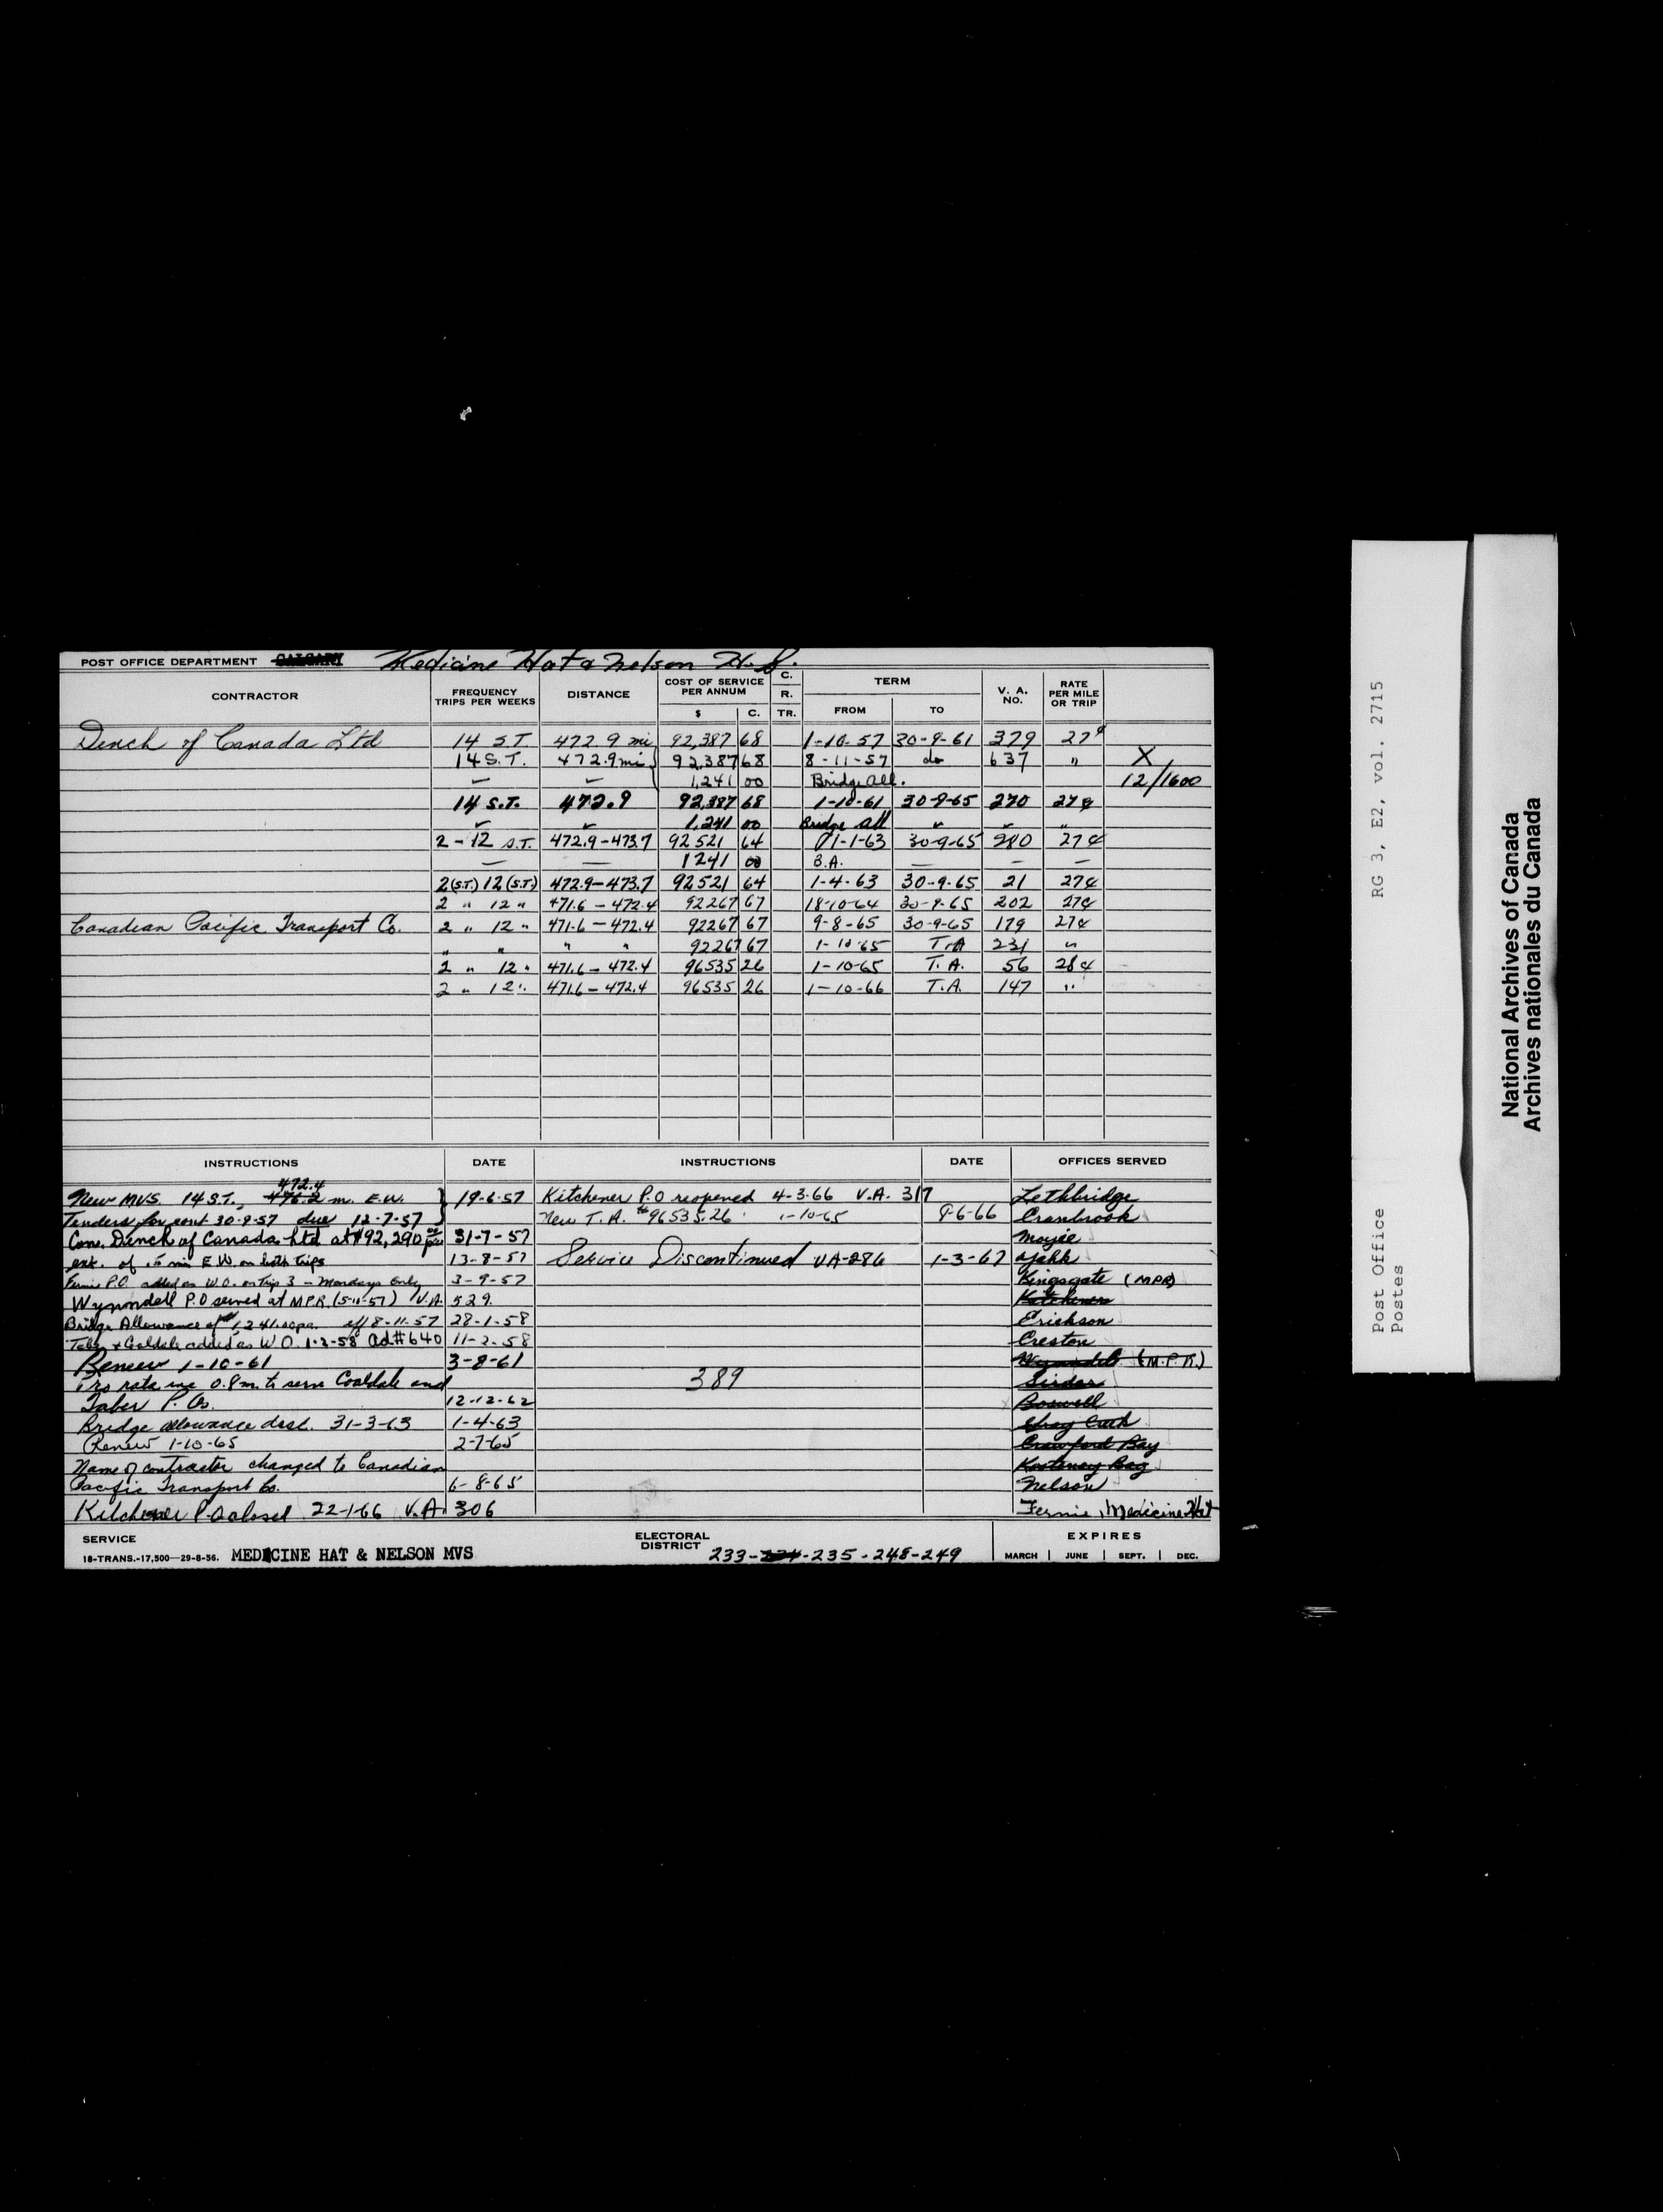 POST OFFICE DEPARTMENT CALGARY Medicine Hat & Nelson H. S.
CONTRACTOR FREQUENCY TRIPS PER WEEKS DISTANCE COST OF SERVICE PER ANNUM $ C. C. R. TR. TERM FROM TO V. A. NO. RATE PER MILE OR TRIP
Dench of Canada Ltd 14 S.T. 472.9 mi 92,387 68 1-10-57 30-9-61 379 27¢
14 S.T. 472.9 mi 92,387 68 8-11-57 do 637 " X
1,241 00 Bridge All. 12/1600
14 S.T. 472.9 92,387 68 1-10-61 30-9-65 270 27¢
1,241 00 Bridge All "
2-12 S.T. 472.9-473.7 92521 64 1-1-63 30-9-65 280 27¢
— — 1241 00 B.A. — — —
2(S.T.) 12(S.T.) 472.9-473.7 92521 64 1-4-63 30-9-65 21 27¢
2 " 12 " 471.6-472.4 92267 67 18-10-64 30-9-65 202 27¢
Canadian Pacific Transport Co. 2 " 12 " 471.6-472.4 92267 67 9-8-65 30-9-65 179 27¢
" " " " 92267 67 1-10-65 T.A 231 "
2 " 12 " 471.6-472.4 96535 26 1-10-65 T.A. 56 28¢
2 " 12 " 471.6-472.4 96535 26 1-10-66 T.A. 147 "
INSTRUCTIONS DATE INSTRUCTIONS DATE OFFICES SERVED
472.4
New MVS. 14 S.T., 476.2 m. E.W. 19-6-57 Kitchener P.O reopened 4-3-66 V.A. 317 Lethbridge
Tenders for cont 30-9-57 due 12-7-57 New T.A. $96535.26 1-10-65 9-6-66 Cranbrook
Con. Dench of Canada Ltd at $92,290 31-7-57 Moyie
ext. of .5 mi E.W. on both trips 13-8-57 Service Discontinued VA-286 1-3-67 Yahk
Fernie P.O. added as W.O. on Trip 3 - Mondays only 3-9-57 Kingsgate (MPR)
Wynndell P.O served at MPR (5-11-57) V.A. 529. Kitchener
Bridge Allowance of $1,241.00 pa. eff 8-11-57 28-1-58 Erickson
Taber & Coaldale added as W.O. 1-2-58 Ad# 640 11-2-58 Creston
Renew 1-10-61 3-8-61 Wynndel (M.P.R.)
Pro rata inc 0.8m. to serve Coaldale and 389 Sirdar
Taber P.Os. 12-12-62 Boswell
Bridge allowance disct. 31-3-63 1-4-63 Gray Creek
Renew 1-10-65 2-7-65 Crawford Bay
Name of contractor changed to Canadian Kootenay Bay
Pacific Transport Co. 6-8-65 Nelson
Kitchener P.O closed 22-1-66 V.A. 306 Fernie, Medicine Hat
SERVICE ELECTORAL DISTRICT 233-234-235-248-249 EXPIRES
18-TRANS.-17,500—29-8-56. MEDICINE HAT & NELSON MVS MARCH | JUNE | SEPT. | DEC.
RG 3, E2, vol. 2715
Post Office
Postes
National Archives of Canada
Archives nationales du Canada